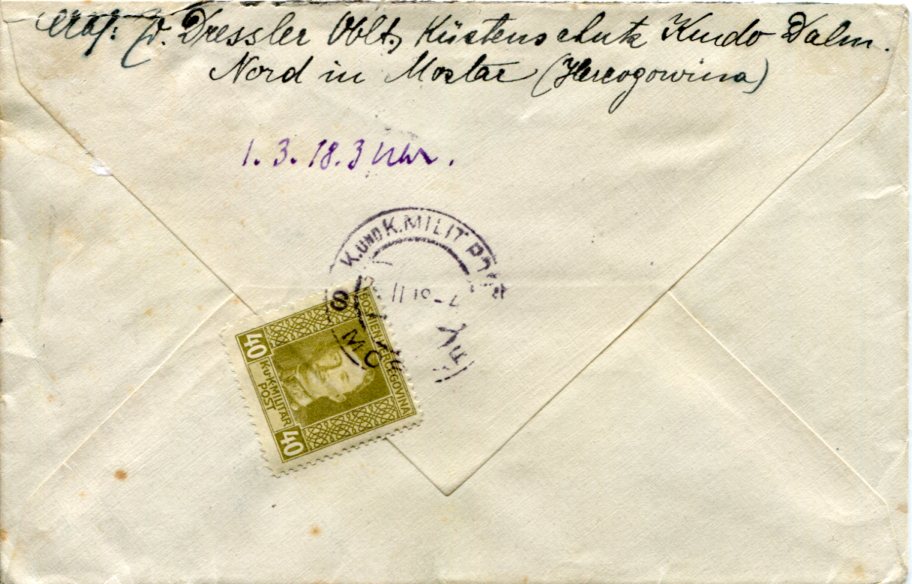 Dressler Oblt, Küstenschutz Kmdo Dalm.
Nord in Mostar (Hercogowina)
1. 3. 18. 3 Uhr.
K. UND K. MILIT. POST
II 18 - 7
MO
BOSNIEN HERCEGOVINA
40
K.u.K. MILITÄR
POST
40